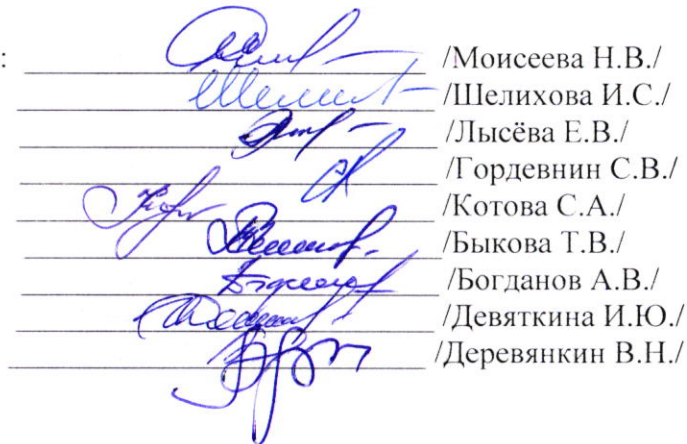 :
/Моисеева Н.В./
/Шелихова И.С./
/Лысёва Е.В./
/Гордевнин С.В./
/Котова С.А./
/Быкова Т.В./
/Богданов А.В./
/Девяткина И.Ю./
/Деревянкин В.Н./